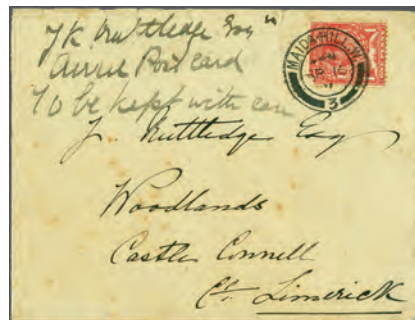 J.K. Ruttledge Esq
Post card
To be kept with care
MAIDA HILL. W.
3
J. Ruttledge Esq
Woodlands
Castle Connell
Co. Limerick